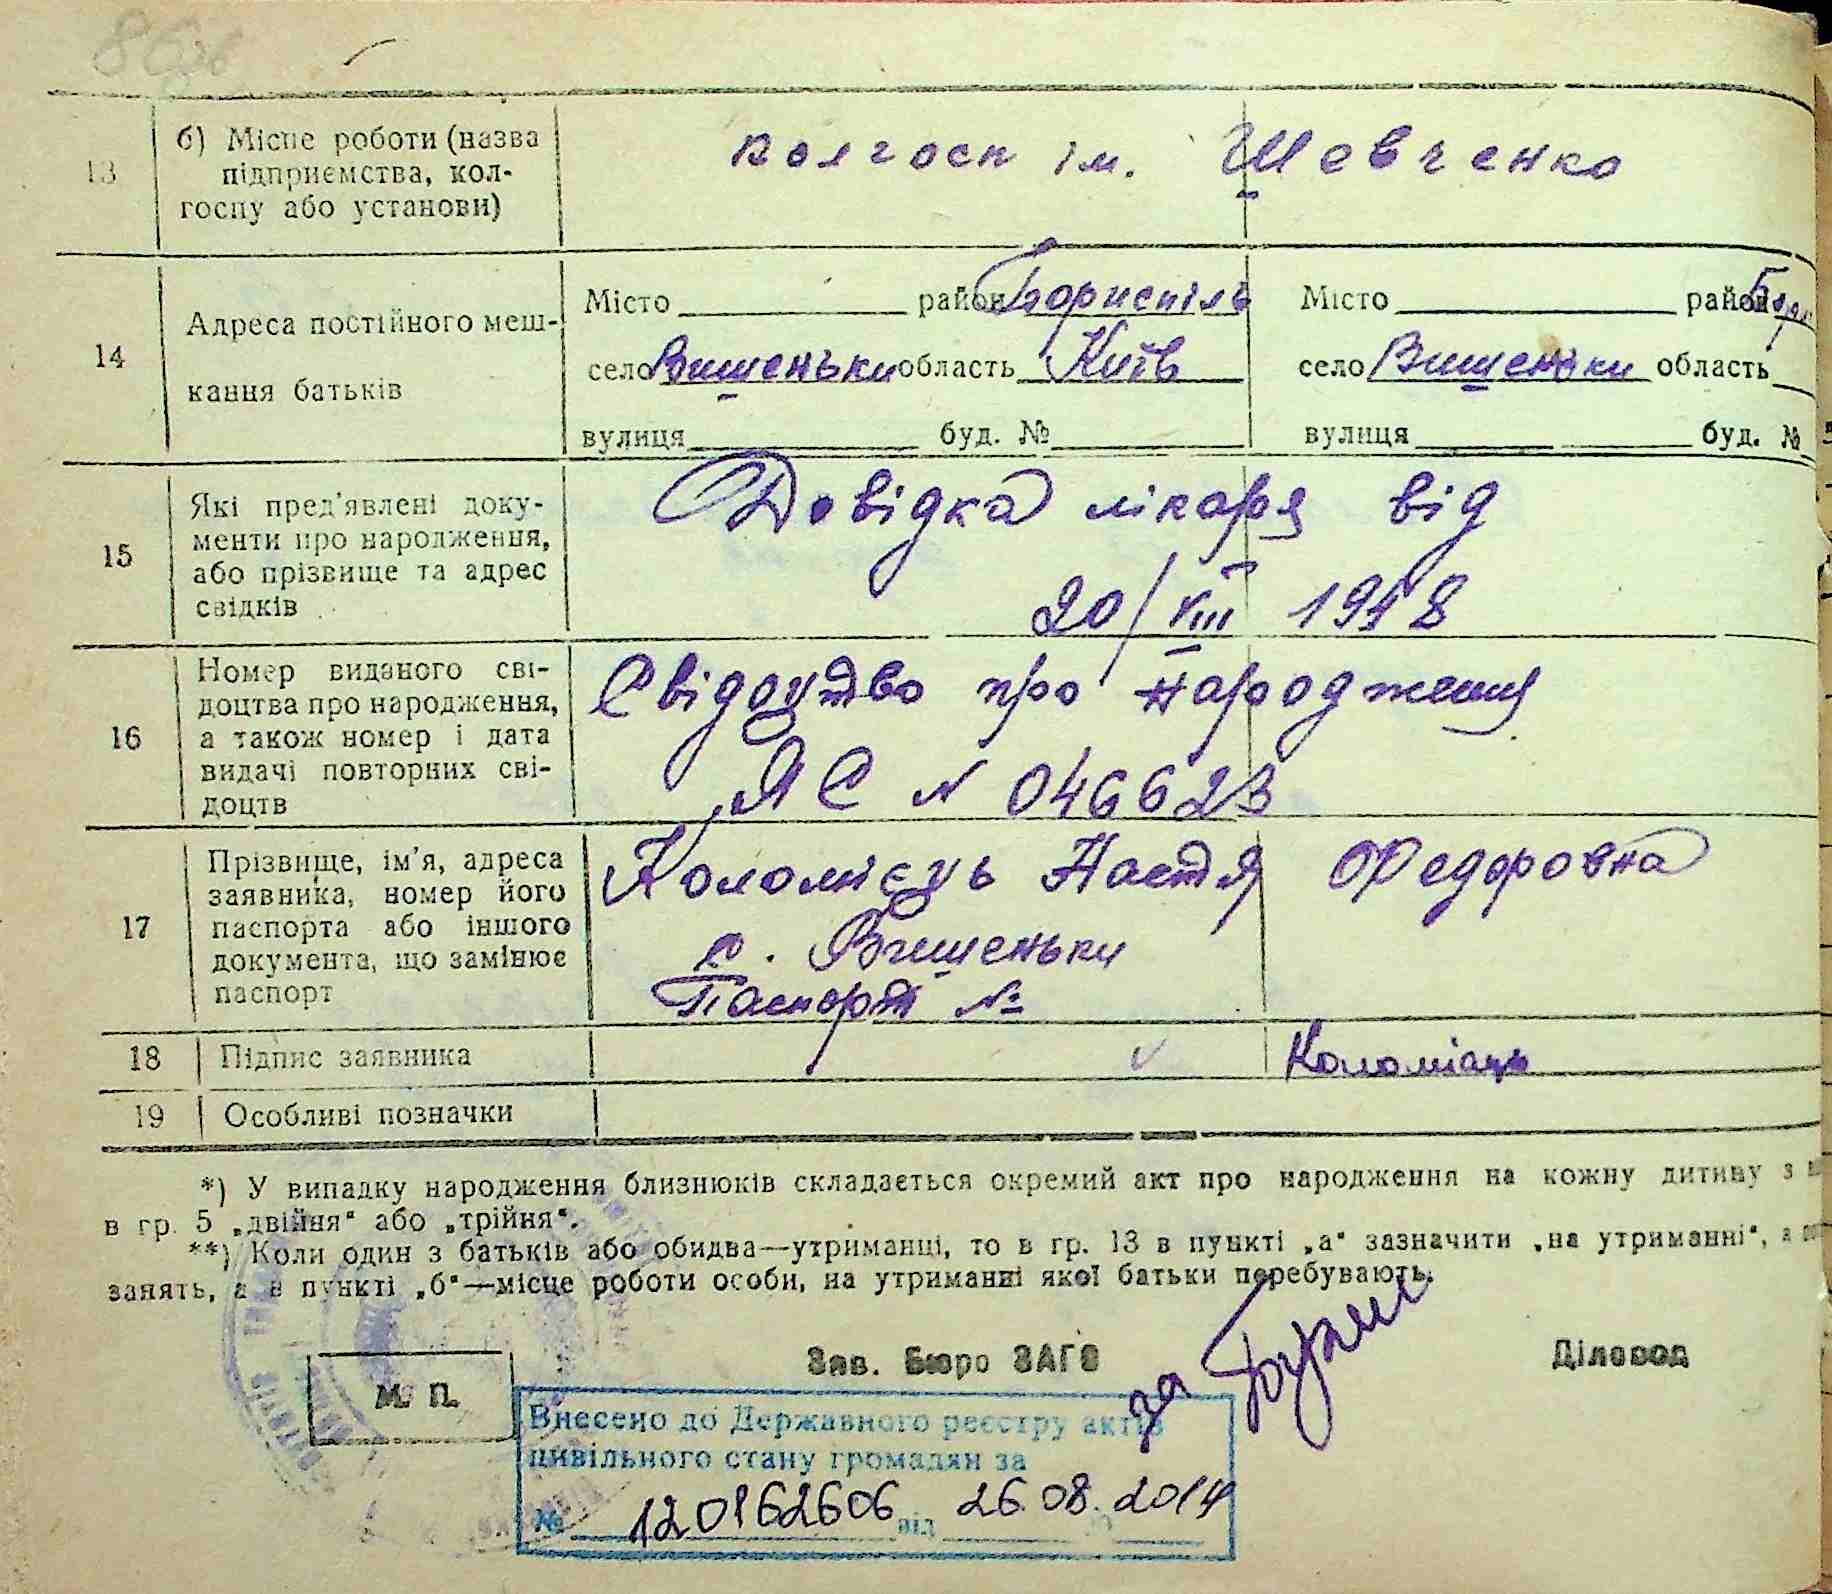 13 б) Місце роботи (назва
підприємства, кол-
госпу або установи)
колгосп ім. Шевченко
14 Адреса постійного меш-
кання батьків
Місто район Бориспіль Місто район
село Вишеньки область Київ село Вишеньки область
вулиця буд. № вулиця буд. №
15 Які пред'явлені доку-
менти про народження,
або прізвище та адрес
свідків
Довідка лікаря від
20/VIII 1948
16 Номер виданого сві-
доцтва про народження,
а також номер і дата
видачі повторних сві-
доцтв
Свідоцтво про народження
ЯС N 046623
17 Прізвище, ім'я, адреса
заявника, номер його
паспорта або іншого
документа, що замінює
паспорт
Коломієць Настя Федоровна
с. Вишеньки
Паспорт №
18 Підпис заявника Коломієць
19 Особливі позначки
*) У випадку народження близнюків складається окремий акт про народження на кожну дитину з
в гр. 5 „двійня“ або „трійня“.
**) Коли один з батьків або обидва—утриманці, то в гр. 13 в пункті „а“ зазначити „на утриманні“, а
занять, а в пункті „б“—місце роботи особи, на утриманні якої батьки перебувають.
Зав. Бюро ЗАГС за Діловод
М. П.
Внесено до Державного реєстру актів
цивільного стану громадян за
№ 120162606 від 26.08.2014